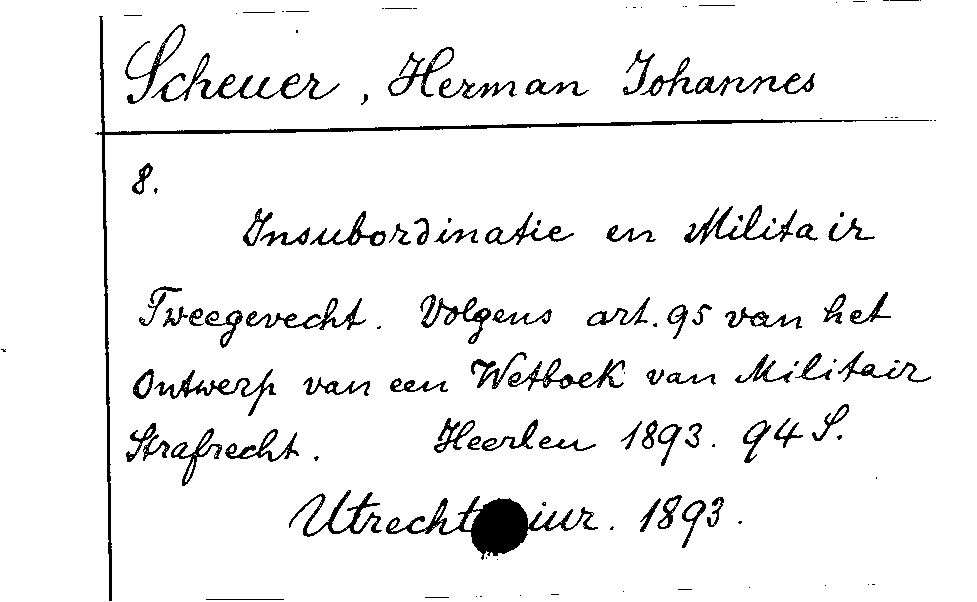 Scheuer, Herman Johannes
8.
Insubordinatie en Militair
Tweegevecht. Volgens art. 95 van het
Ontwerp van een Wetboek van Militair
Strafrecht. Heerlen 1893. 94 S.
Utrecht iur. 1893.